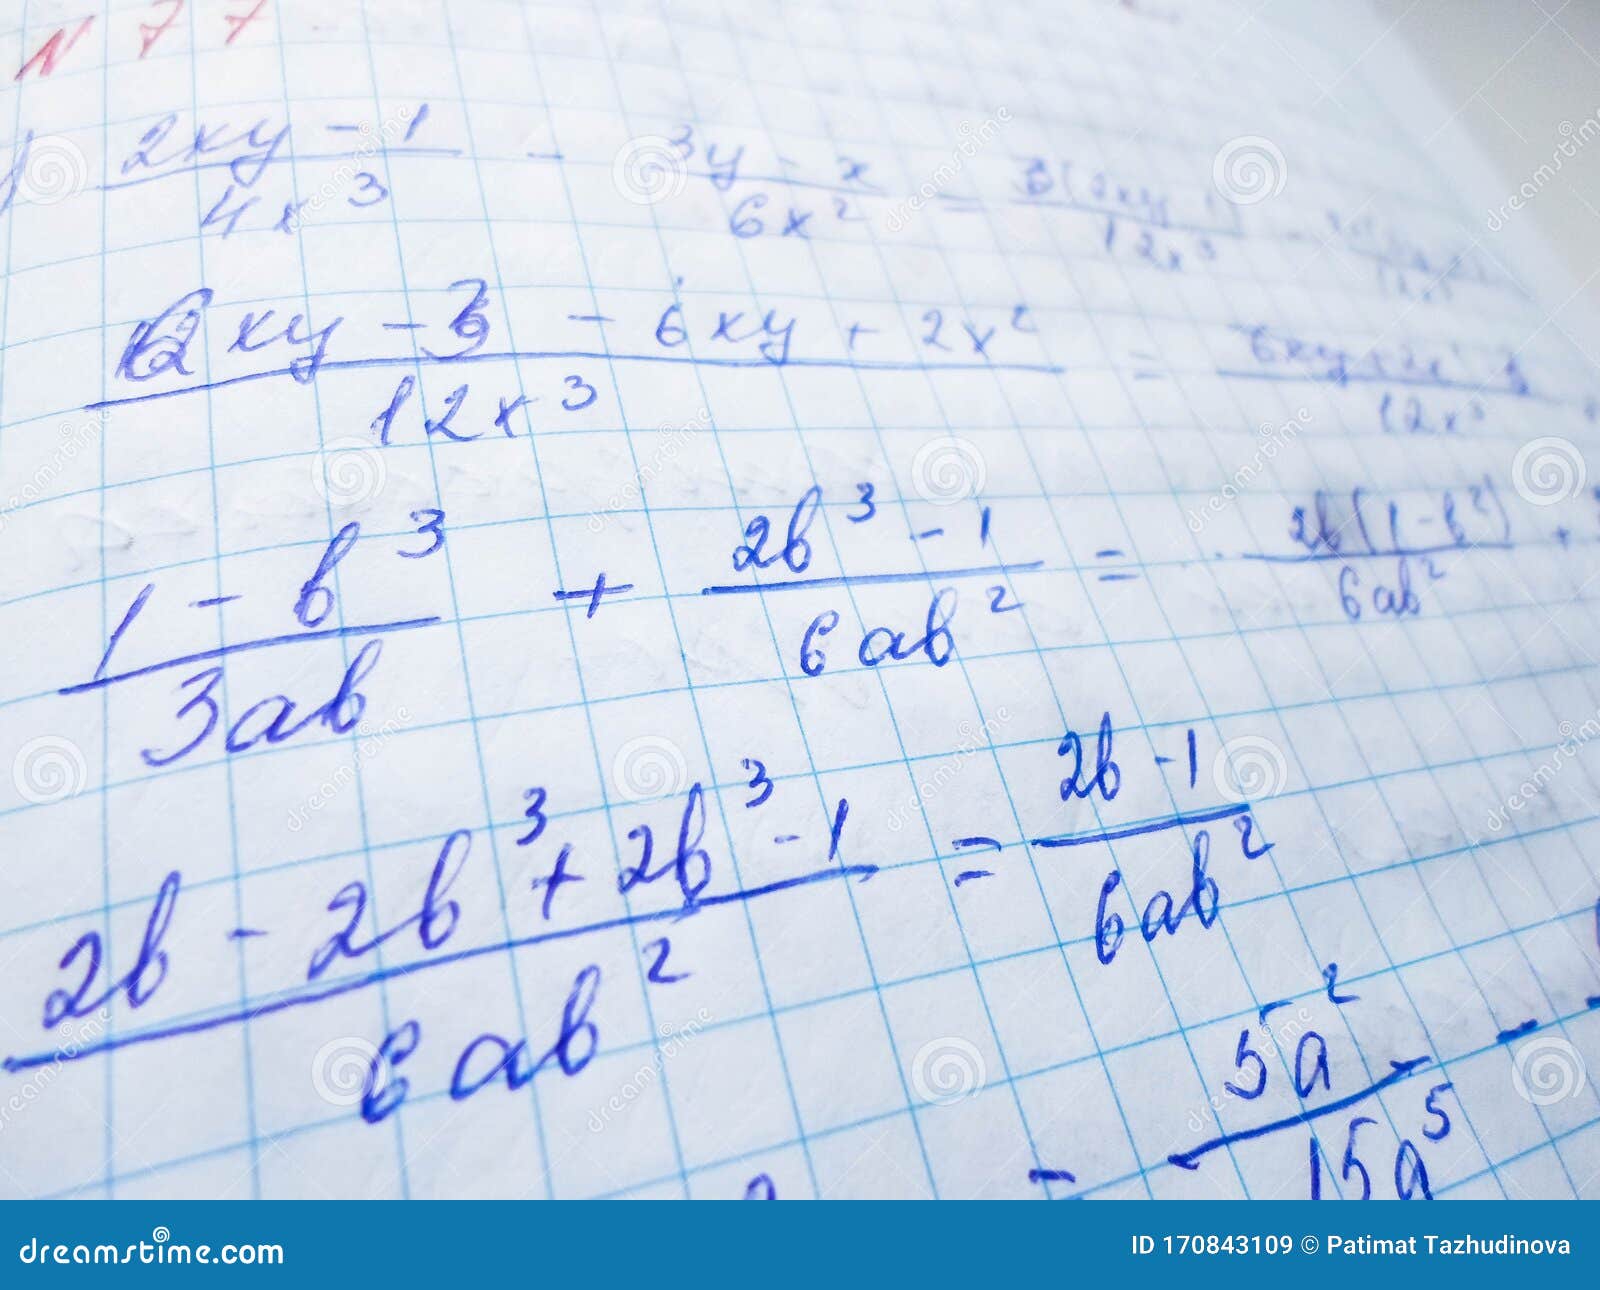 N 77
) (2xy - 1)/(4x³) - (3y - x)/(6x²) = (3(2xy - 1))/(12x³) -
(6xy - 3 - 6xy + 2x²)/(12x³) =
(1 - b³)/(3ab) + (2b³ - 1)/(6ab²) = (2b(1 - b²))/(6ab²) +
(2b - 2b³ + 2b³ - 1)/(6ab²) = (2b - 1)/(6ab²)
- (5a² -)/(15a⁵) -
dreamstime.com
ID 170843109 © Patimat Tazhudinova